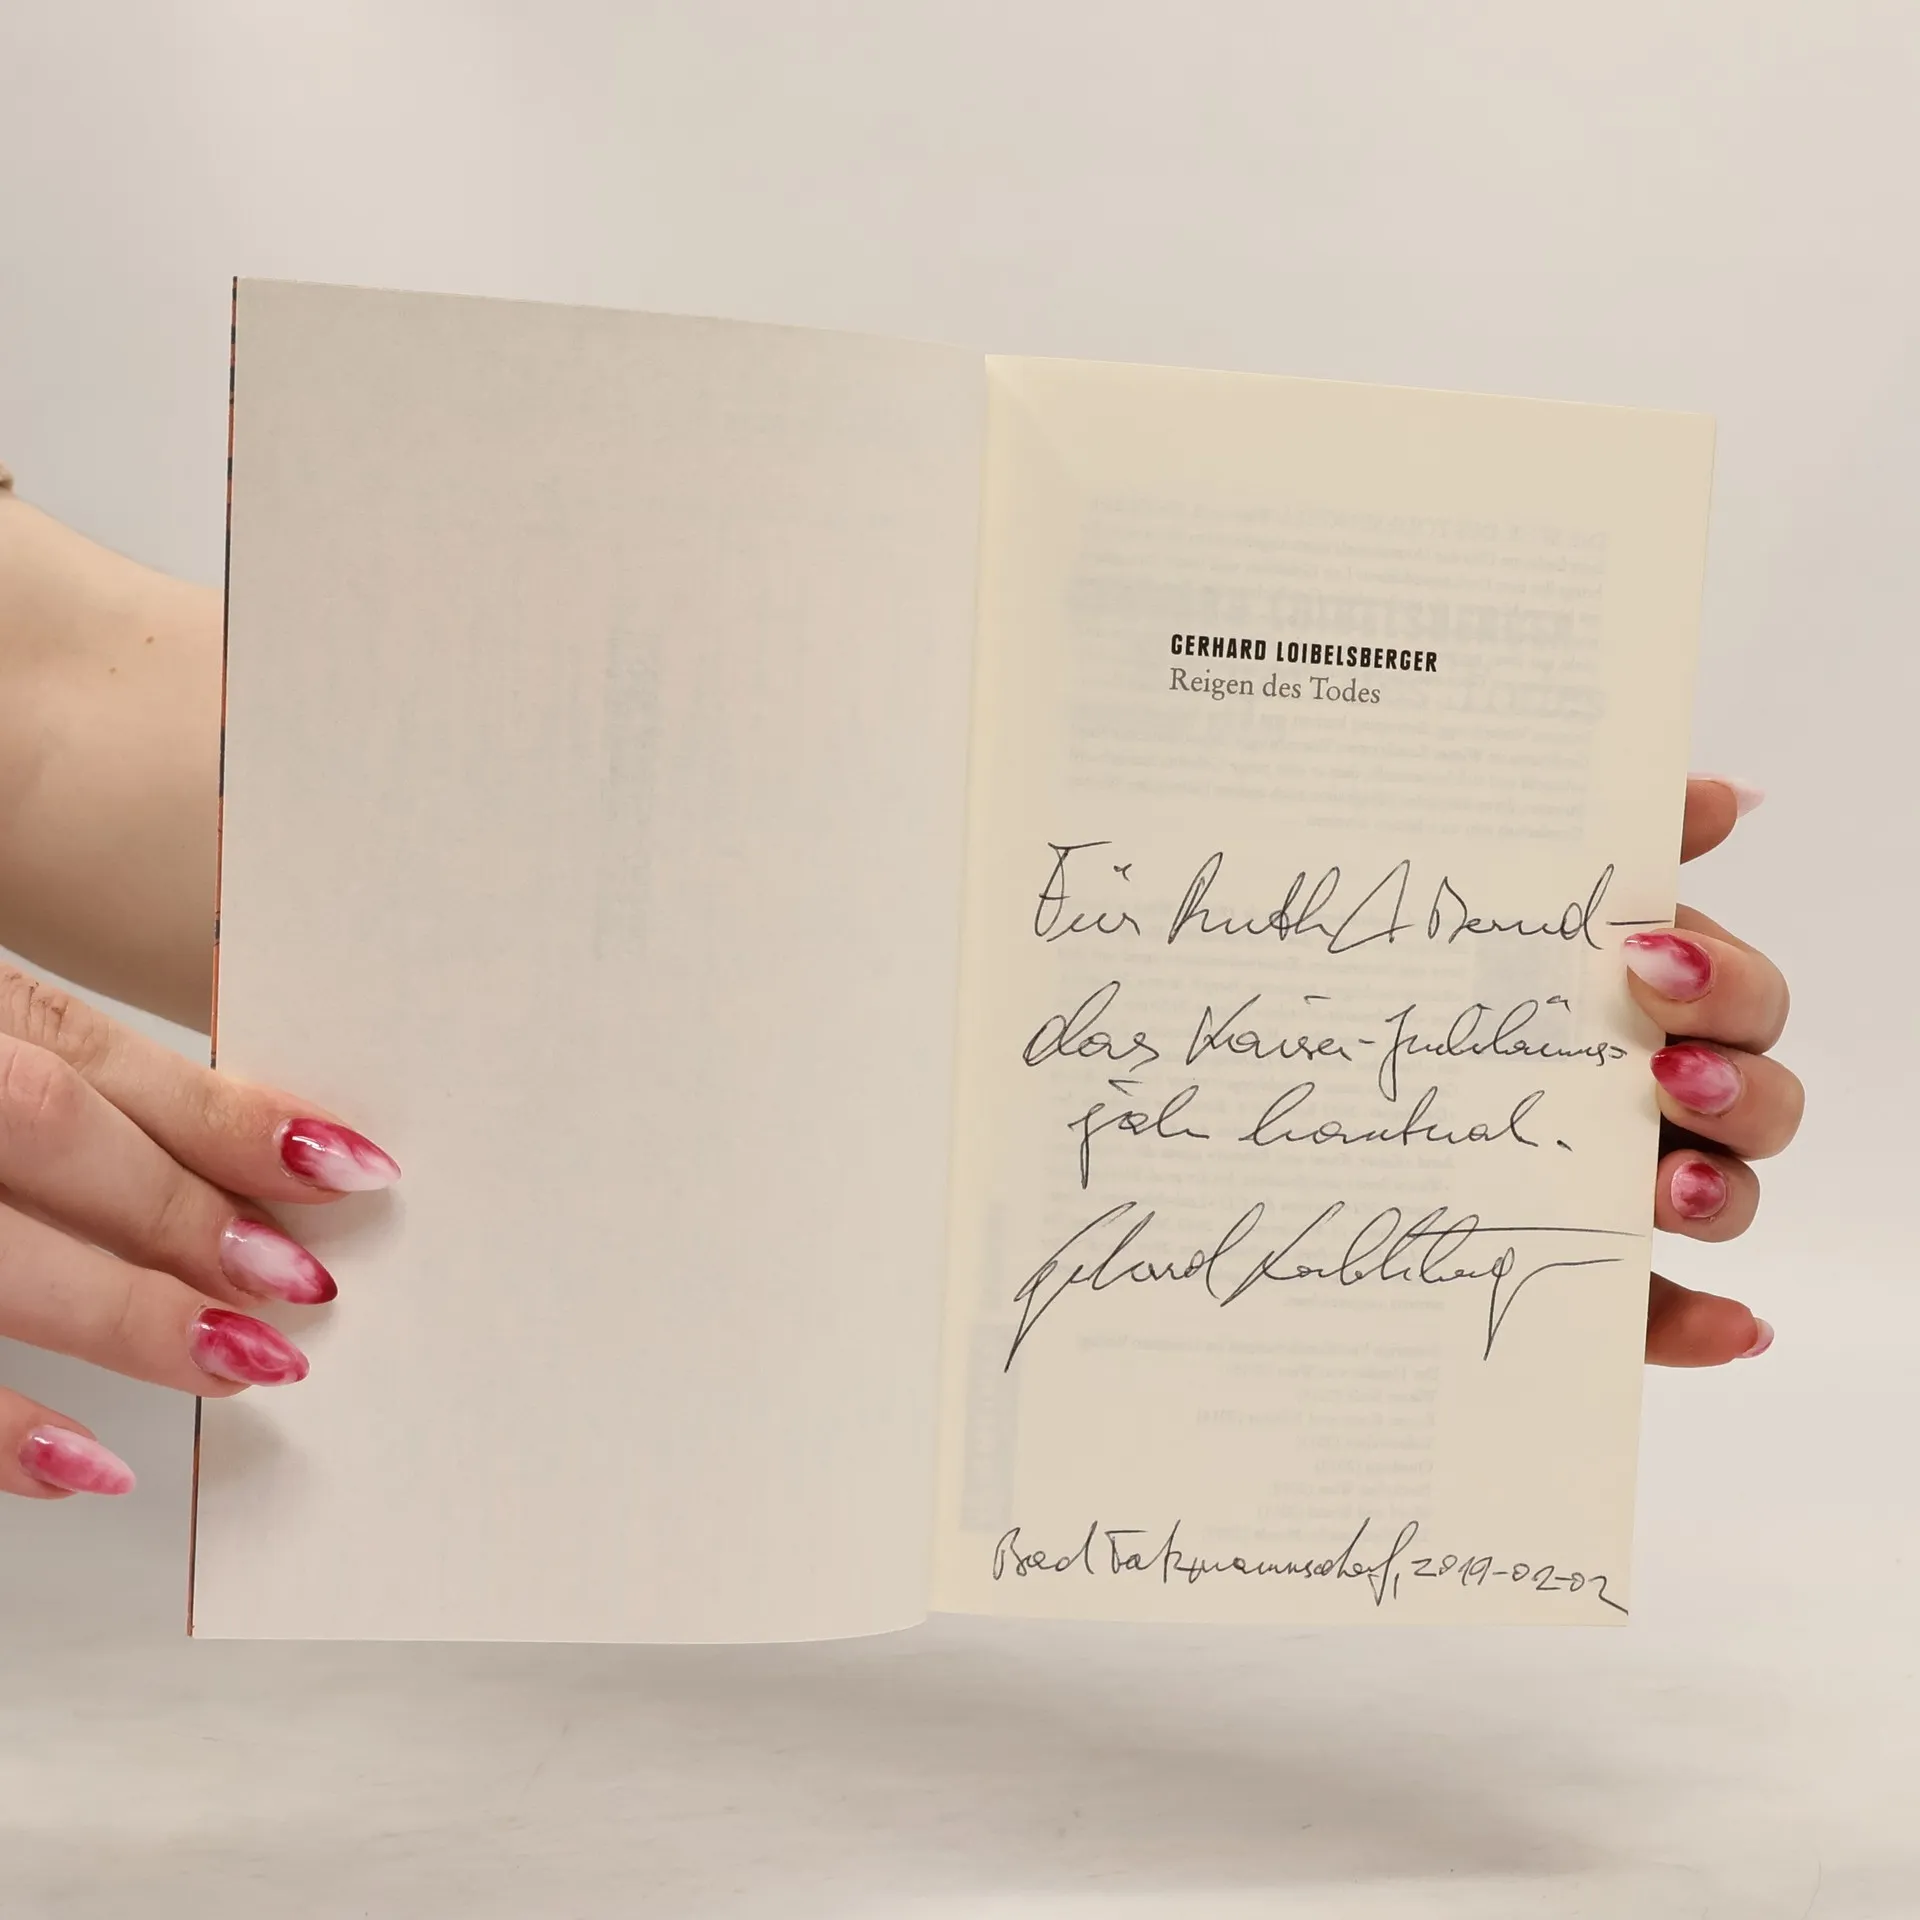 GERHARD LOIBELSBERGER
Reigen des Todes
Für Ruth & Bernd –
das Kaiser-Jubiläums-
jahr hautnah.
Gerhard Loibelsberger
Bad Tatzmannsdorf, 2019-02-02